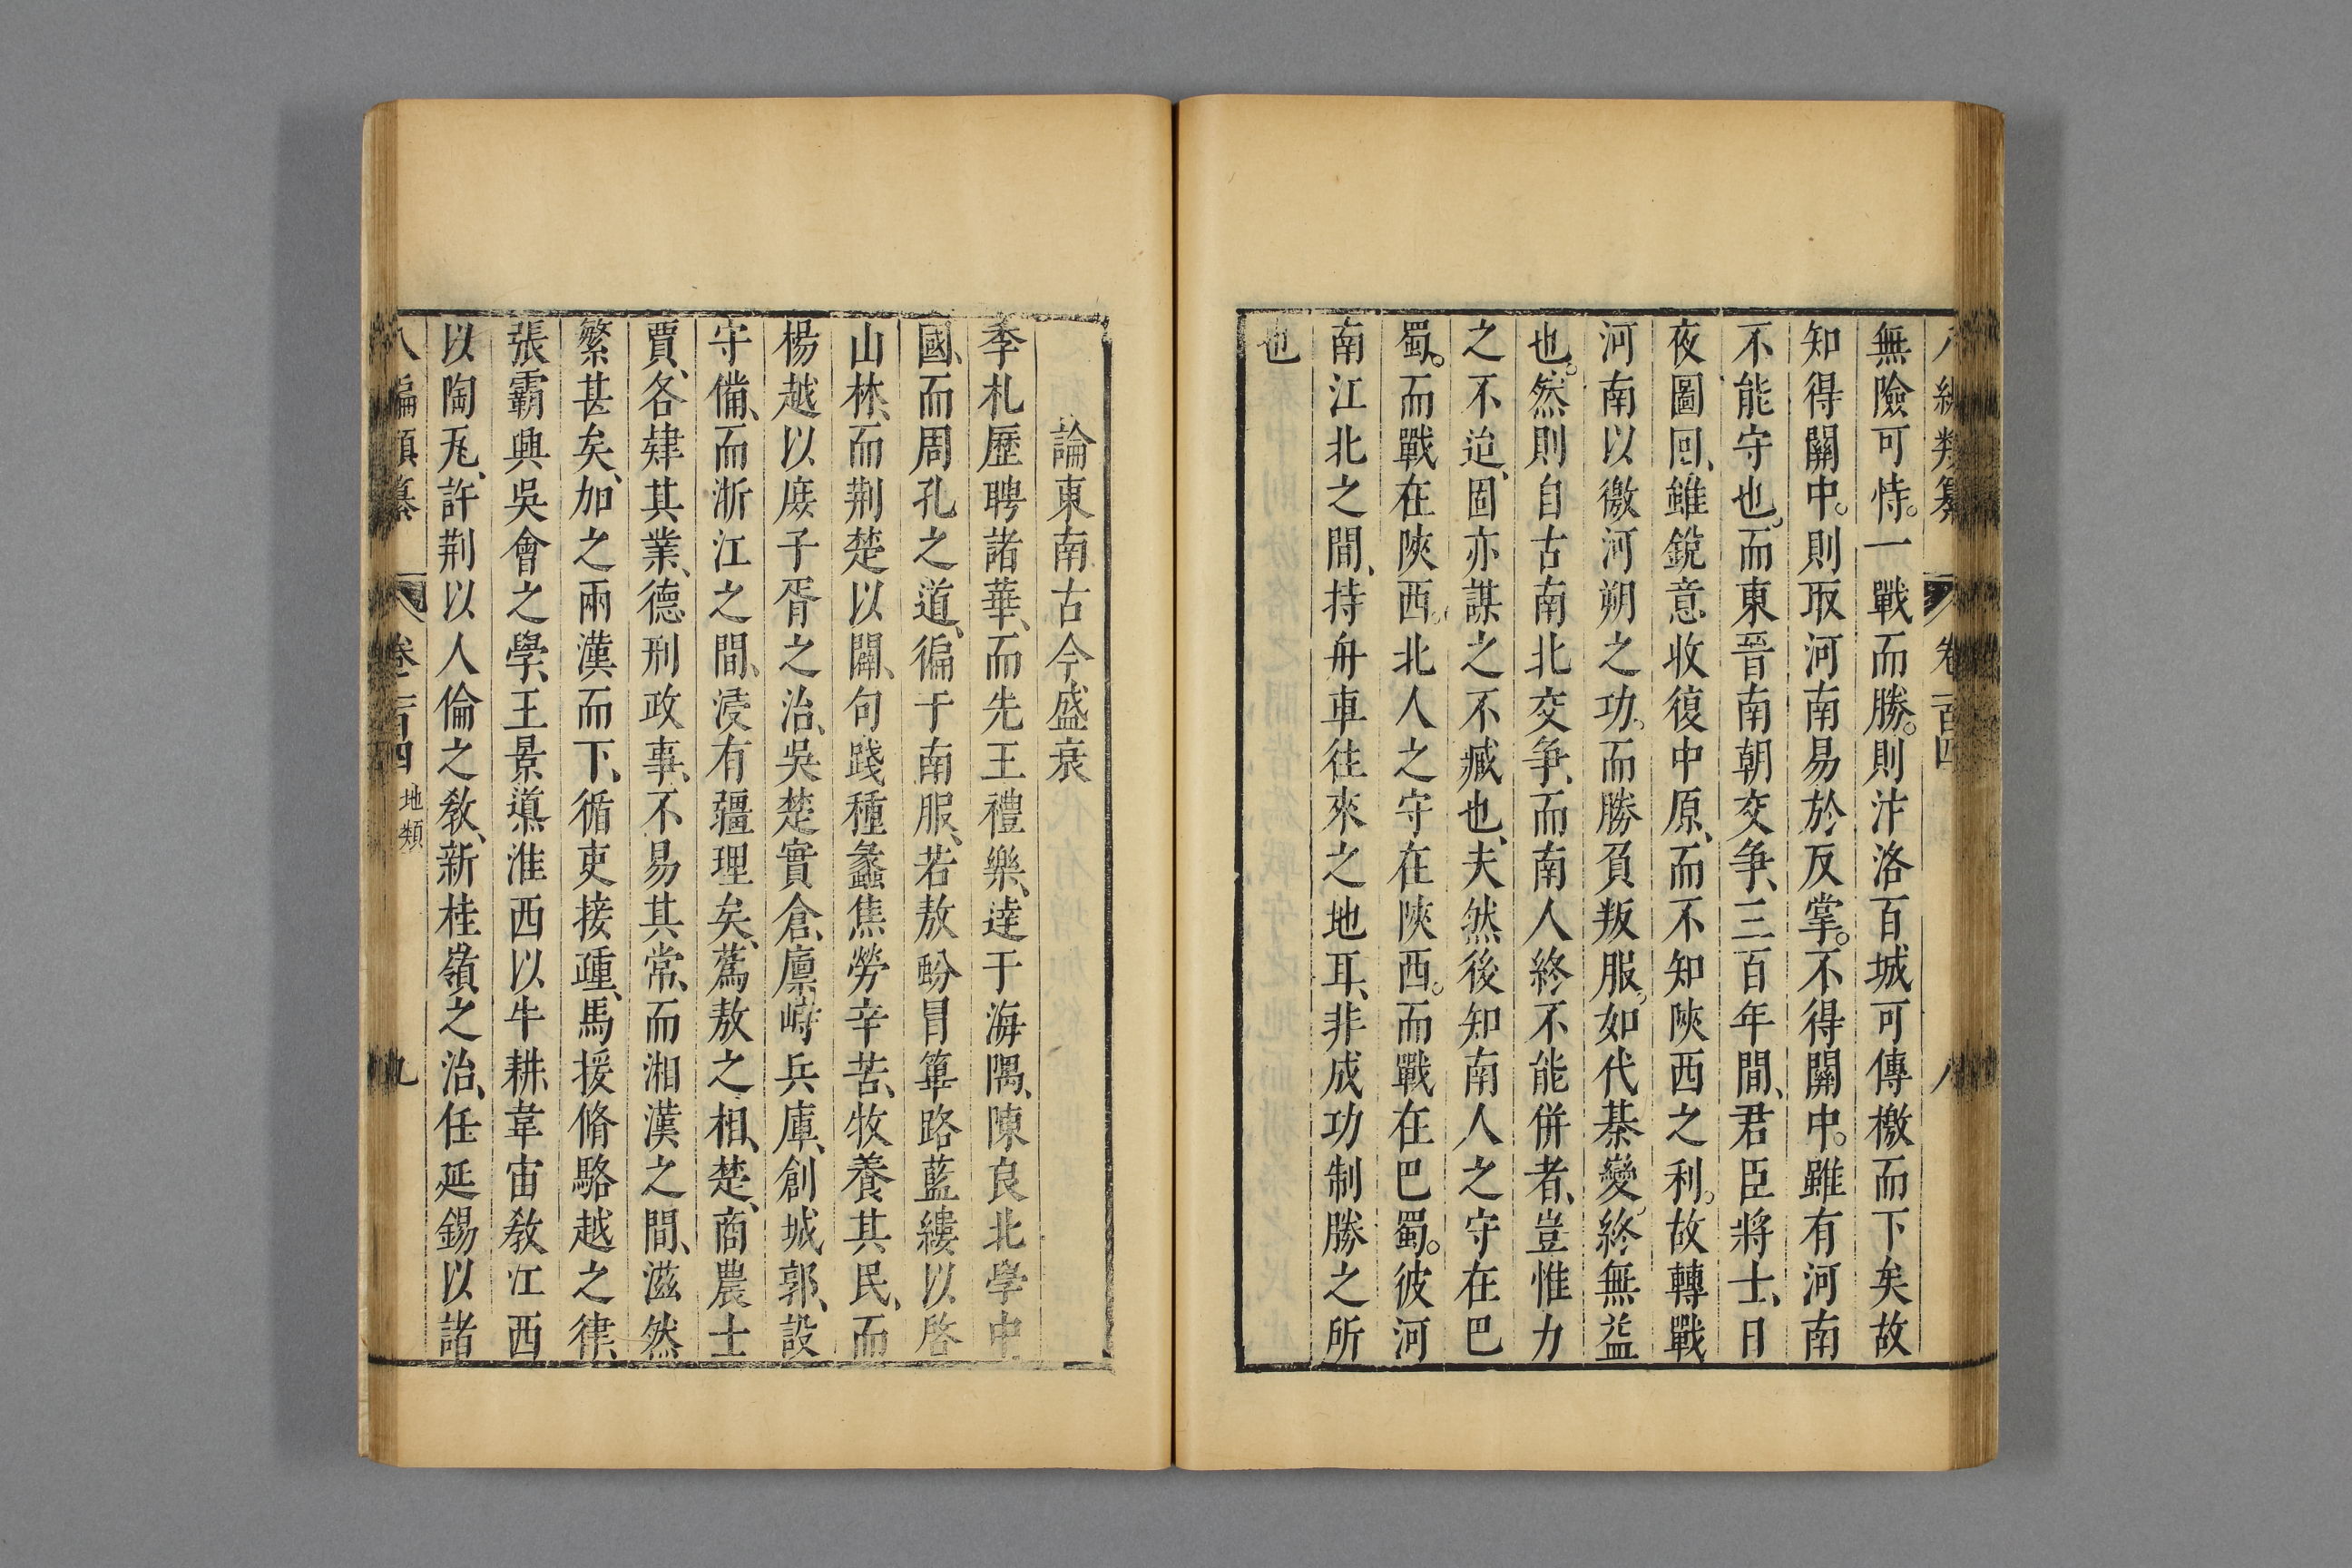 八編類纂 卷一百四 八
無險可恃。一戰而勝。則汴洛百城可傳檄而下矣故
知得關中。則取河南易於反掌。不得關中。雖有河南
不能守也。而東晉南朝交爭、三百年間、君臣將士、日
夜圖回、雖銳意收復中原、而不知陝西之利。故轉戰
河南以徼河朔之功。而勝負叛服。如代棊變。終無益
也。然則自古南北交爭、而南人終不能併者、豈惟力
之不迨、固亦謀之不臧也、夫然後知南人之守在巴
蜀。而戰在陝西。北人之守在陝西。而戰在巴蜀。彼河
南江北之間、持舟車往來之地耳、非成功制勝之所
也
論東南古今盛衰
季札歷聘諸華、而先王禮樂、達于海隅、陳良北學中
國、而周孔之道、徧于南服、若敖蚡冒篳路藍縷以啓
山林、而荆楚以闢、句踐種蠡焦勞辛苦、牧養其民、而
楊越以庶子胥之治、吳楚實倉廩峙兵庫、創城郭、設
守備、而浙江之間、浸有疆理矣、蔿敖之相楚、商農士
賈、各肄其業、德刑政事、不易其常、而湘漢之間、滋然
繁甚矣、加之兩漢而下、循吏接踵、馬援脩駱越之律、
張霸興吳會之學、王景導淮西以牛耕、韋宙敎江西
以陶瓦、許荆以人倫之敎、新桂嶺之治、任延錫以諸
八編類纂 卷一百四 地類 九